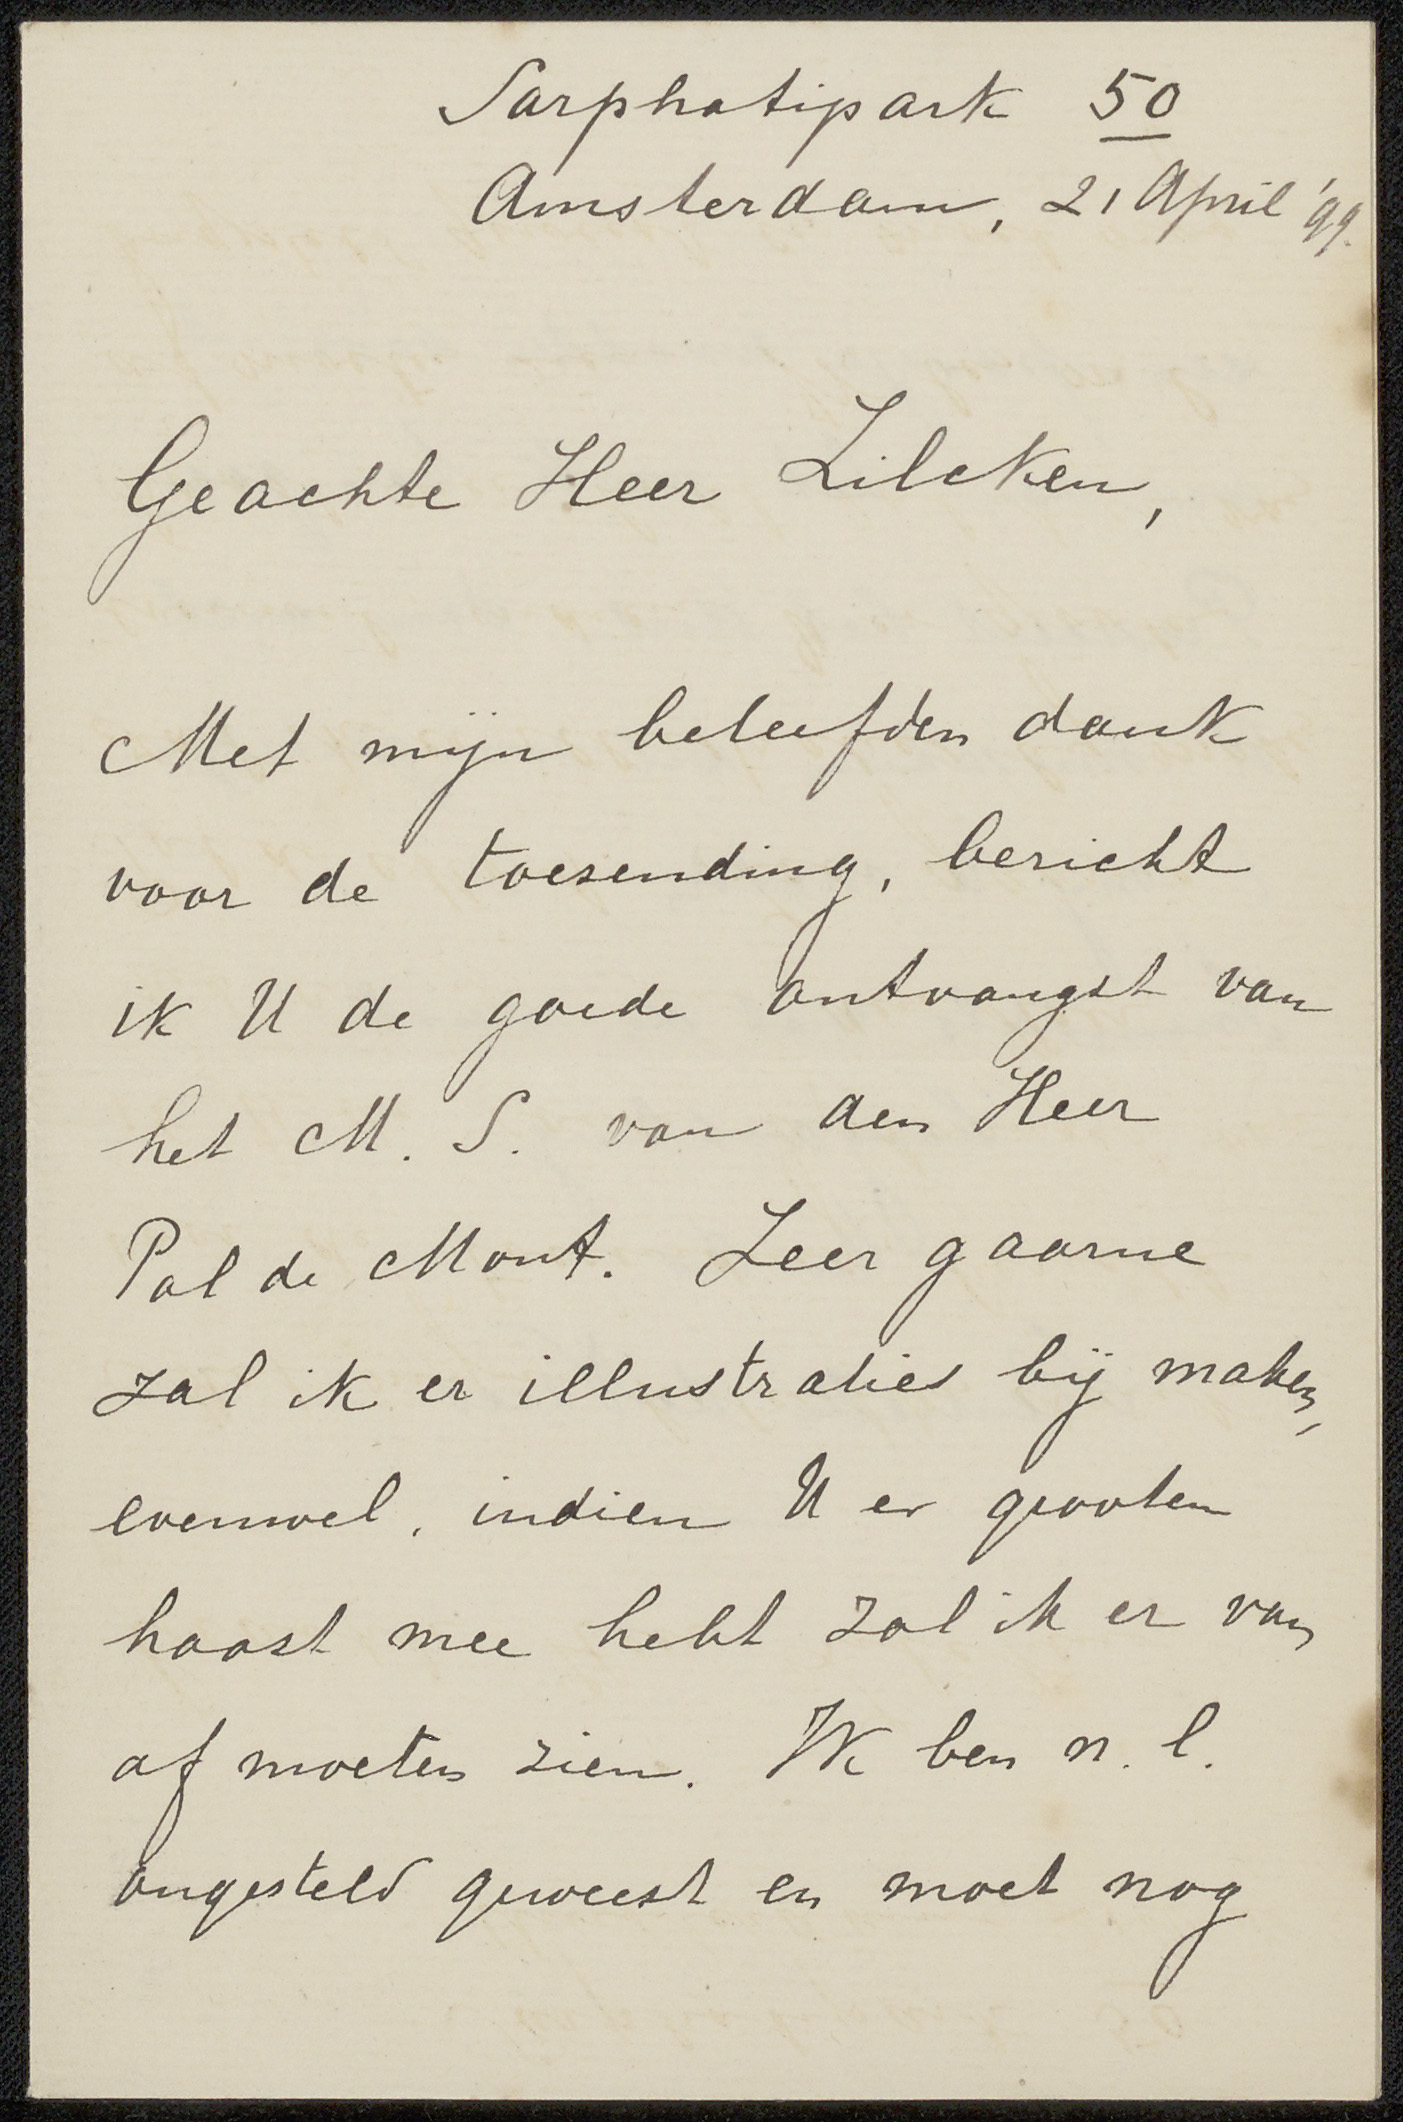 Sarphatipark 50
Amsterdam, 21 April '99.
Geachte Heer Zilcken,
Met mijn beleefden dank
voor de toezending, bericht
ik U de goede ontvangst van
het M. S. van den Heer
Pol de Mont. Zeer gaarne
zal ik er illustraties bij maken,
evenwel, indien U er grooten
haast mee hebt zal ik er van
af moeten zien. Ik ben n. l.
ongesteld geweest en moet nog